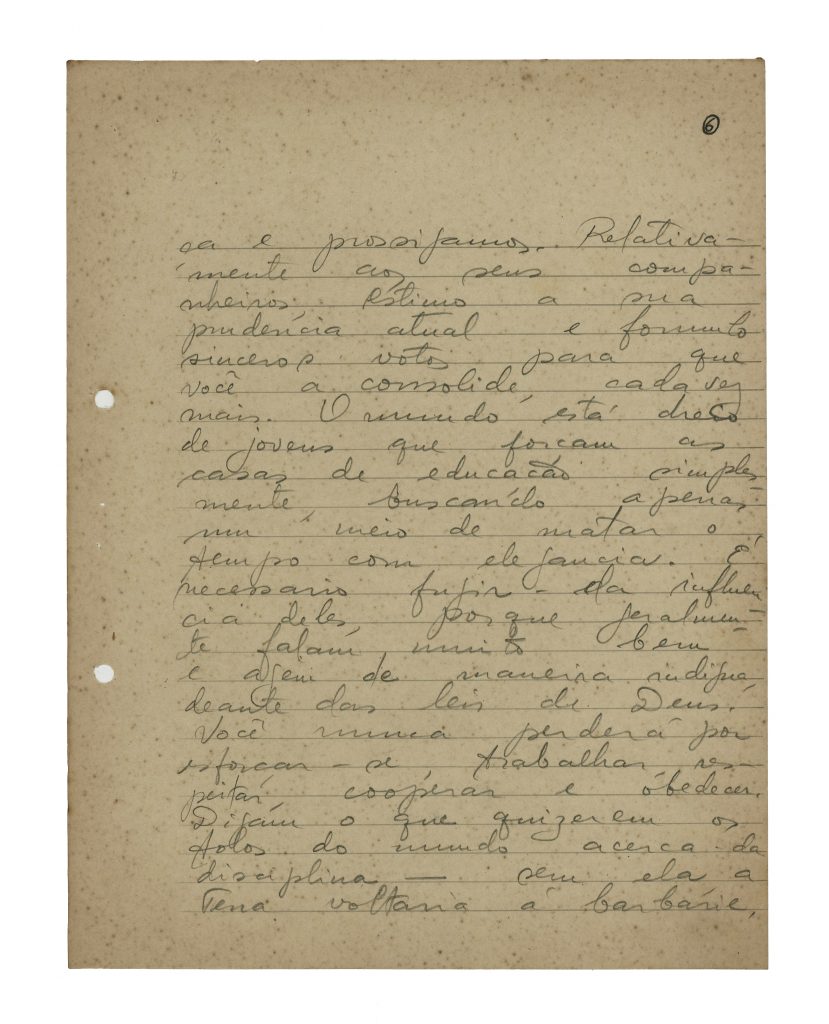 6
ca e prossigamos. Relativa-
mente aos seus compa-
nheiros estimo a sua
prudência atual e formulo
sinceros votos para que
você a consolide, cada vez
mais. O mundo está cheio
de jovens que forçam as
casas de educação simples-
mente, buscando apenas
um meio de matar o
tempo com elegancia. É
necessario fugir-da influen
cia deles, porque geralmen-
te falam muito bem
e agem de maneira indigna
deante das leis de Deus.
Você nunca perderá por
esforçar-se, trabalhar, res-
peitar, cooperar e obedecer.
Digam o que quizerem os
tolos do mundo acerca da
disciplina — sem ela a
Terra voltaria á barbárie,